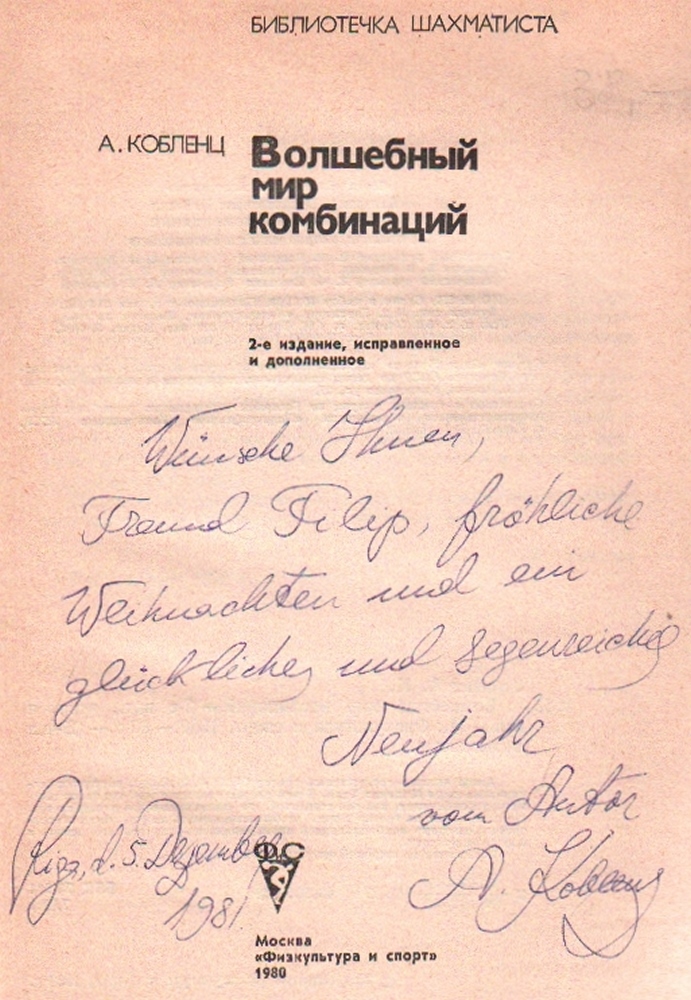 БИБЛИОТЕЧКА ШАХМАТИСТА
А. КОБЛЕНЦ
Волшебный
мир
комбинаций
2-е издание, исправленное
и дополненное
Wünsche Ihnen,
Freund Filip, fröhliche
Weihnachten und ein
glückliches und segenreiches
Neujahr
vom Autor
A. Koblenz
Riga, d. 5. Dezember
1981
ФиС
Москва
«Физкультура и спорт»
1980